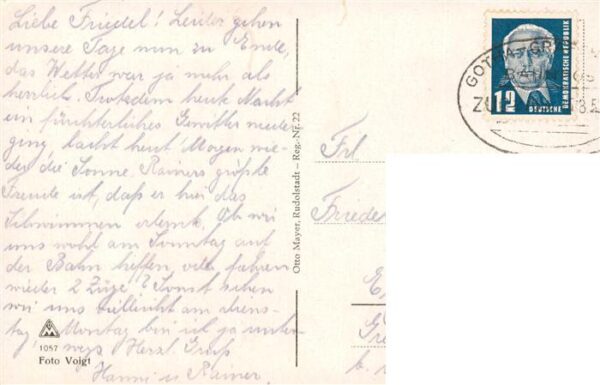 Liebe Friedel! Leider gehen
unsere Tage nun zu Ende,
das Wetter war ja mehr als
herrlich. Trotzdem heute Nacht
ein fürchterliches Gewitter nieder
ging lacht heut Morgen wie-
der die Sonne. Rainers größte
Freude ist, daß er hier das
Schwimmen erlernt. Ob wir
uns wohl am Sonntag auf
der Bahn treffen, oder fahren
wieder 2 Züge? Sonst sehen
wir uns vielleicht am Diens-
tag, Montag bin ich ja unter-
wegs Herzl. Grüße
Hanni u Rainer
1057
Foto Voigt
Otto Mayer, Rudolstadt – Reg.-Nr. 22
GOTHA-GR
BAH
ZU
8.5
12
DEUTSCHE
DEMOKRATISCHE REPUBLIK
Frl
Friede